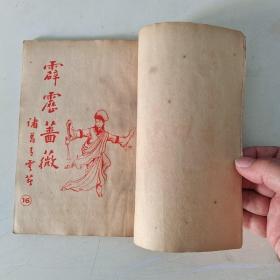 霹靂薔薇
諸葛青雲著
16